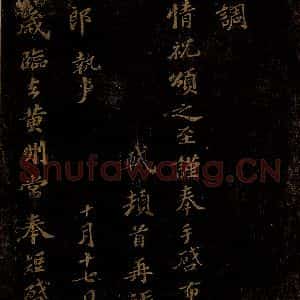 調
情祝頌之至謹奉手啓布
軾頓首再拜
十月十七日
郎執事
歲臨去黄州嘗奉短啓
Shufawang.CN